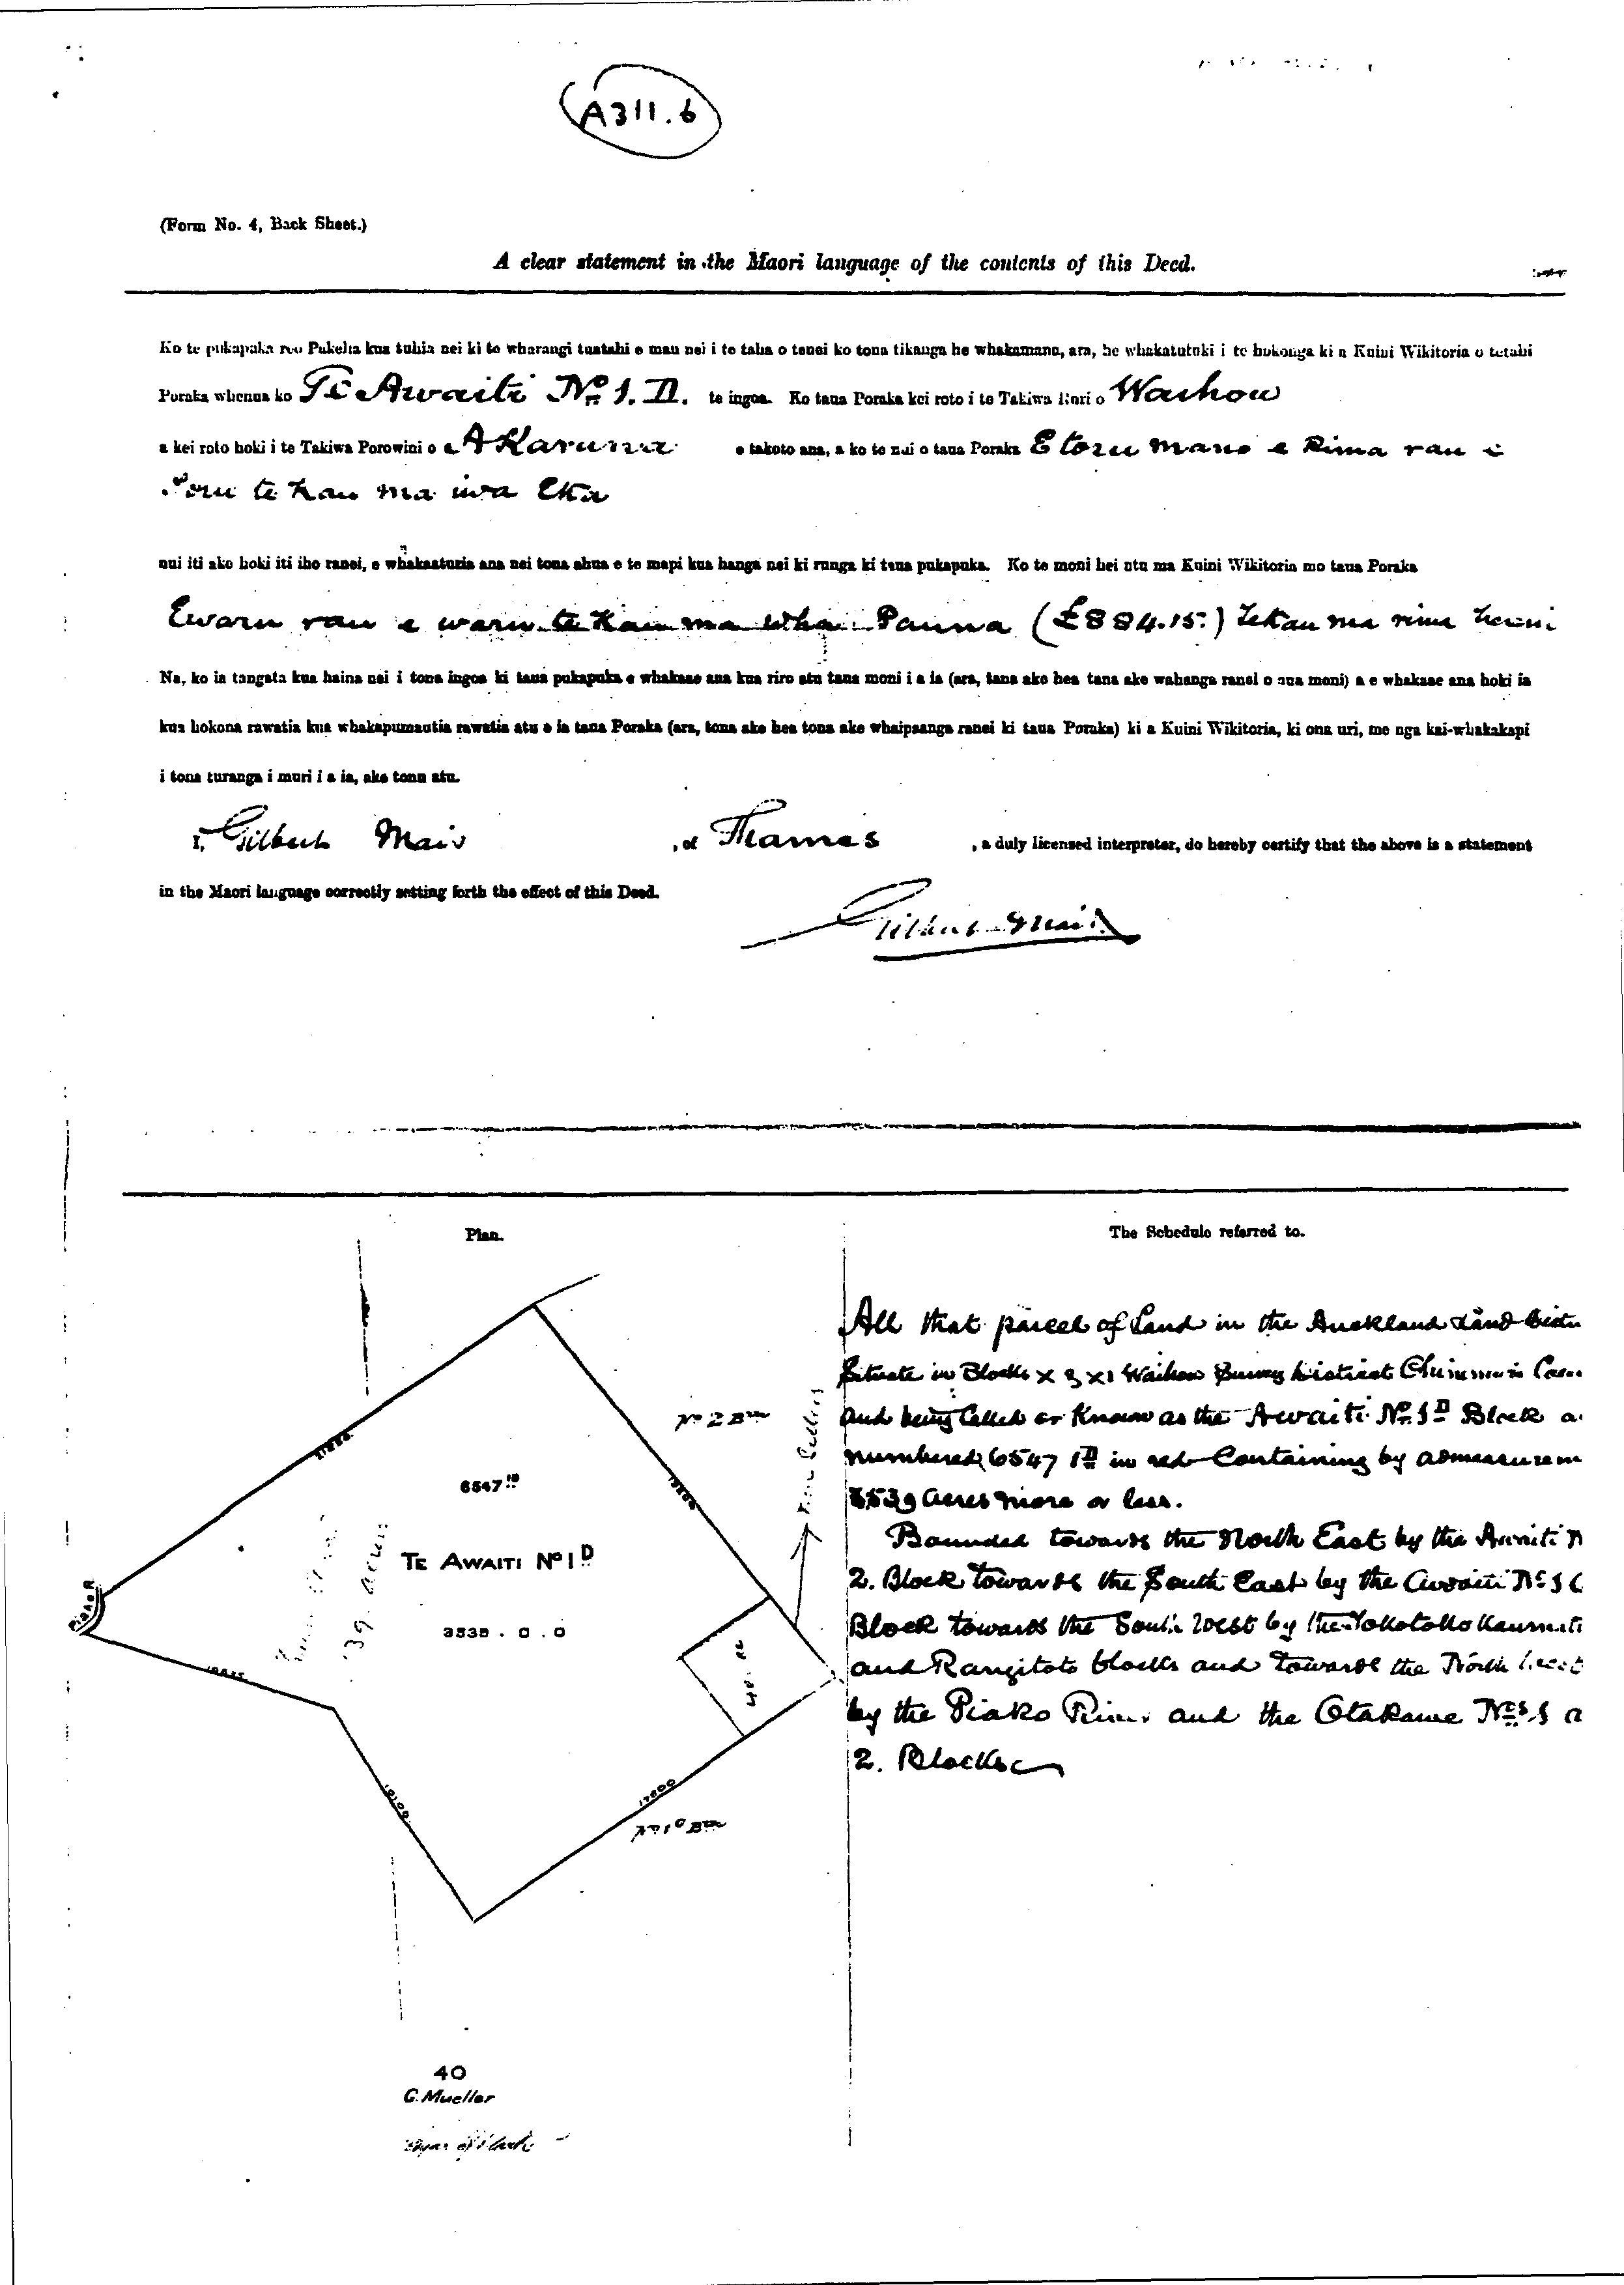 A311.6
(Form No. 4, Back Sheet.)
A clear statement in the Maori language of the contents of this Deed.
Ko te pukapuka reo Pakeha kua tuhia nei ki te wharangi tuatahi e mau nei i te taha o tenei ko tona tikanga he whakamana, ara, he whakatutuki i te hokonga ki a Kuini Wikitoria o tetahi
Poraka whenua ko Te Awaiti No. 1. D. te ingoa. Ko taua Poraka kei roto i te Takiwa Ruri o Waihou
a kei roto hoki i te Takiwa Porowini o Akarana e takoto ana, a ko te nui o taua Poraka E toru mano e Rima rau e
Toru te kau ma iwa Eka
nui iti ake hoki iti iho ranei, e whakaaturia ana nei tona ahua e te mapi kua hanga nei ki runga ki taua pukapuka. Ko te moni hei utu ma Kuini Wikitoria mo taua Poraka
Ewaru rau e waru te Kau ma wha Pauna (£884.15.) tekau ma rima hereni
Na, ko ia tangata kua haina nei i tona ingoa ki taua pukapuka e whakaae ana kua riro atu tana moni i a ia (ara, tana ake hea tana ake wahanga ranei o aua moni) a e whakaae ana hoki ia
kua hokona rawatia kua whakapumautia rawatia atu e ia taua Poraka (ara, tona ake hea tona ake whaipaanga ranei ki taua Poraka) ki a Kuini Wikitoria, ki ona uri, me nga kai-whakakapi
i tona turanga i muri i a ia, ake tonu atu.
I, Gilbert Mair, of Thames, a duly licensed interpreter, do hereby certify that the above is a statement
in the Maori language correctly setting forth the effect of this Deed.
Gilbert Mair
Plan.
The Schedule referred to.
No 2 Bk
6547 1D
TE AWAITI No 1 D
39 acres
3539 . 0 . 0
PIAKO R
17600
No 1C Bk
40
G. Mueller
All that parcel of Land in the Auckland Land Distr
Situate in Blocks X & XI Waihou Survey District
and being Called or Known as the Awaiti No. 1D Block a
numbered 6547 1D in red Containing by admeasurem
3539 acres more or less.
Bounded towards the North East by the Awaiti N
2. Block towards the South East by the Awaiti No 1 C
Block towards the South West by the Tokotoko
and Rangitoto blocks and towards the North West
by the Piako River and the Otakawe Nos. 1 a
2. Blocks